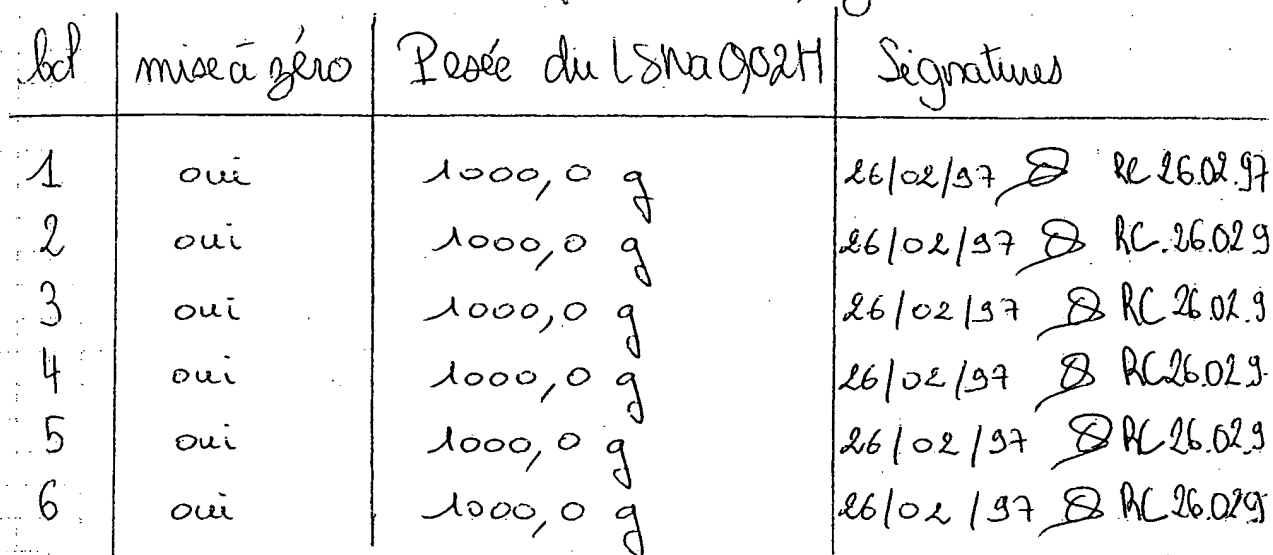 bcl mise à zéro Pesée du LSNa902H Signatures
1 oui 1000,0 g 26/02/97 RC 26.02.97
2 oui 1000,0 g 26/02/97 RC.26.029
3 oui 1000,0 g 26/02/97 RC 26.02.9
4 oui 1000,0 g 26/02/97 RC26.029
5 oui 1000,0 g 26/02/97 RC 26.029
6 oui 1000,0 g 26/02/97 RC 26.029